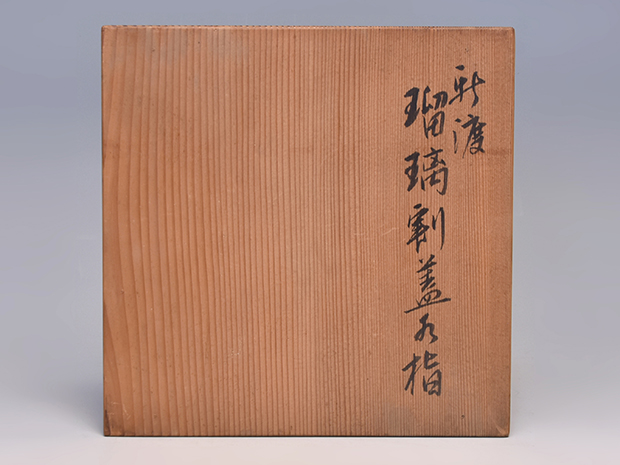 新渡
瑠璃割蓋水指